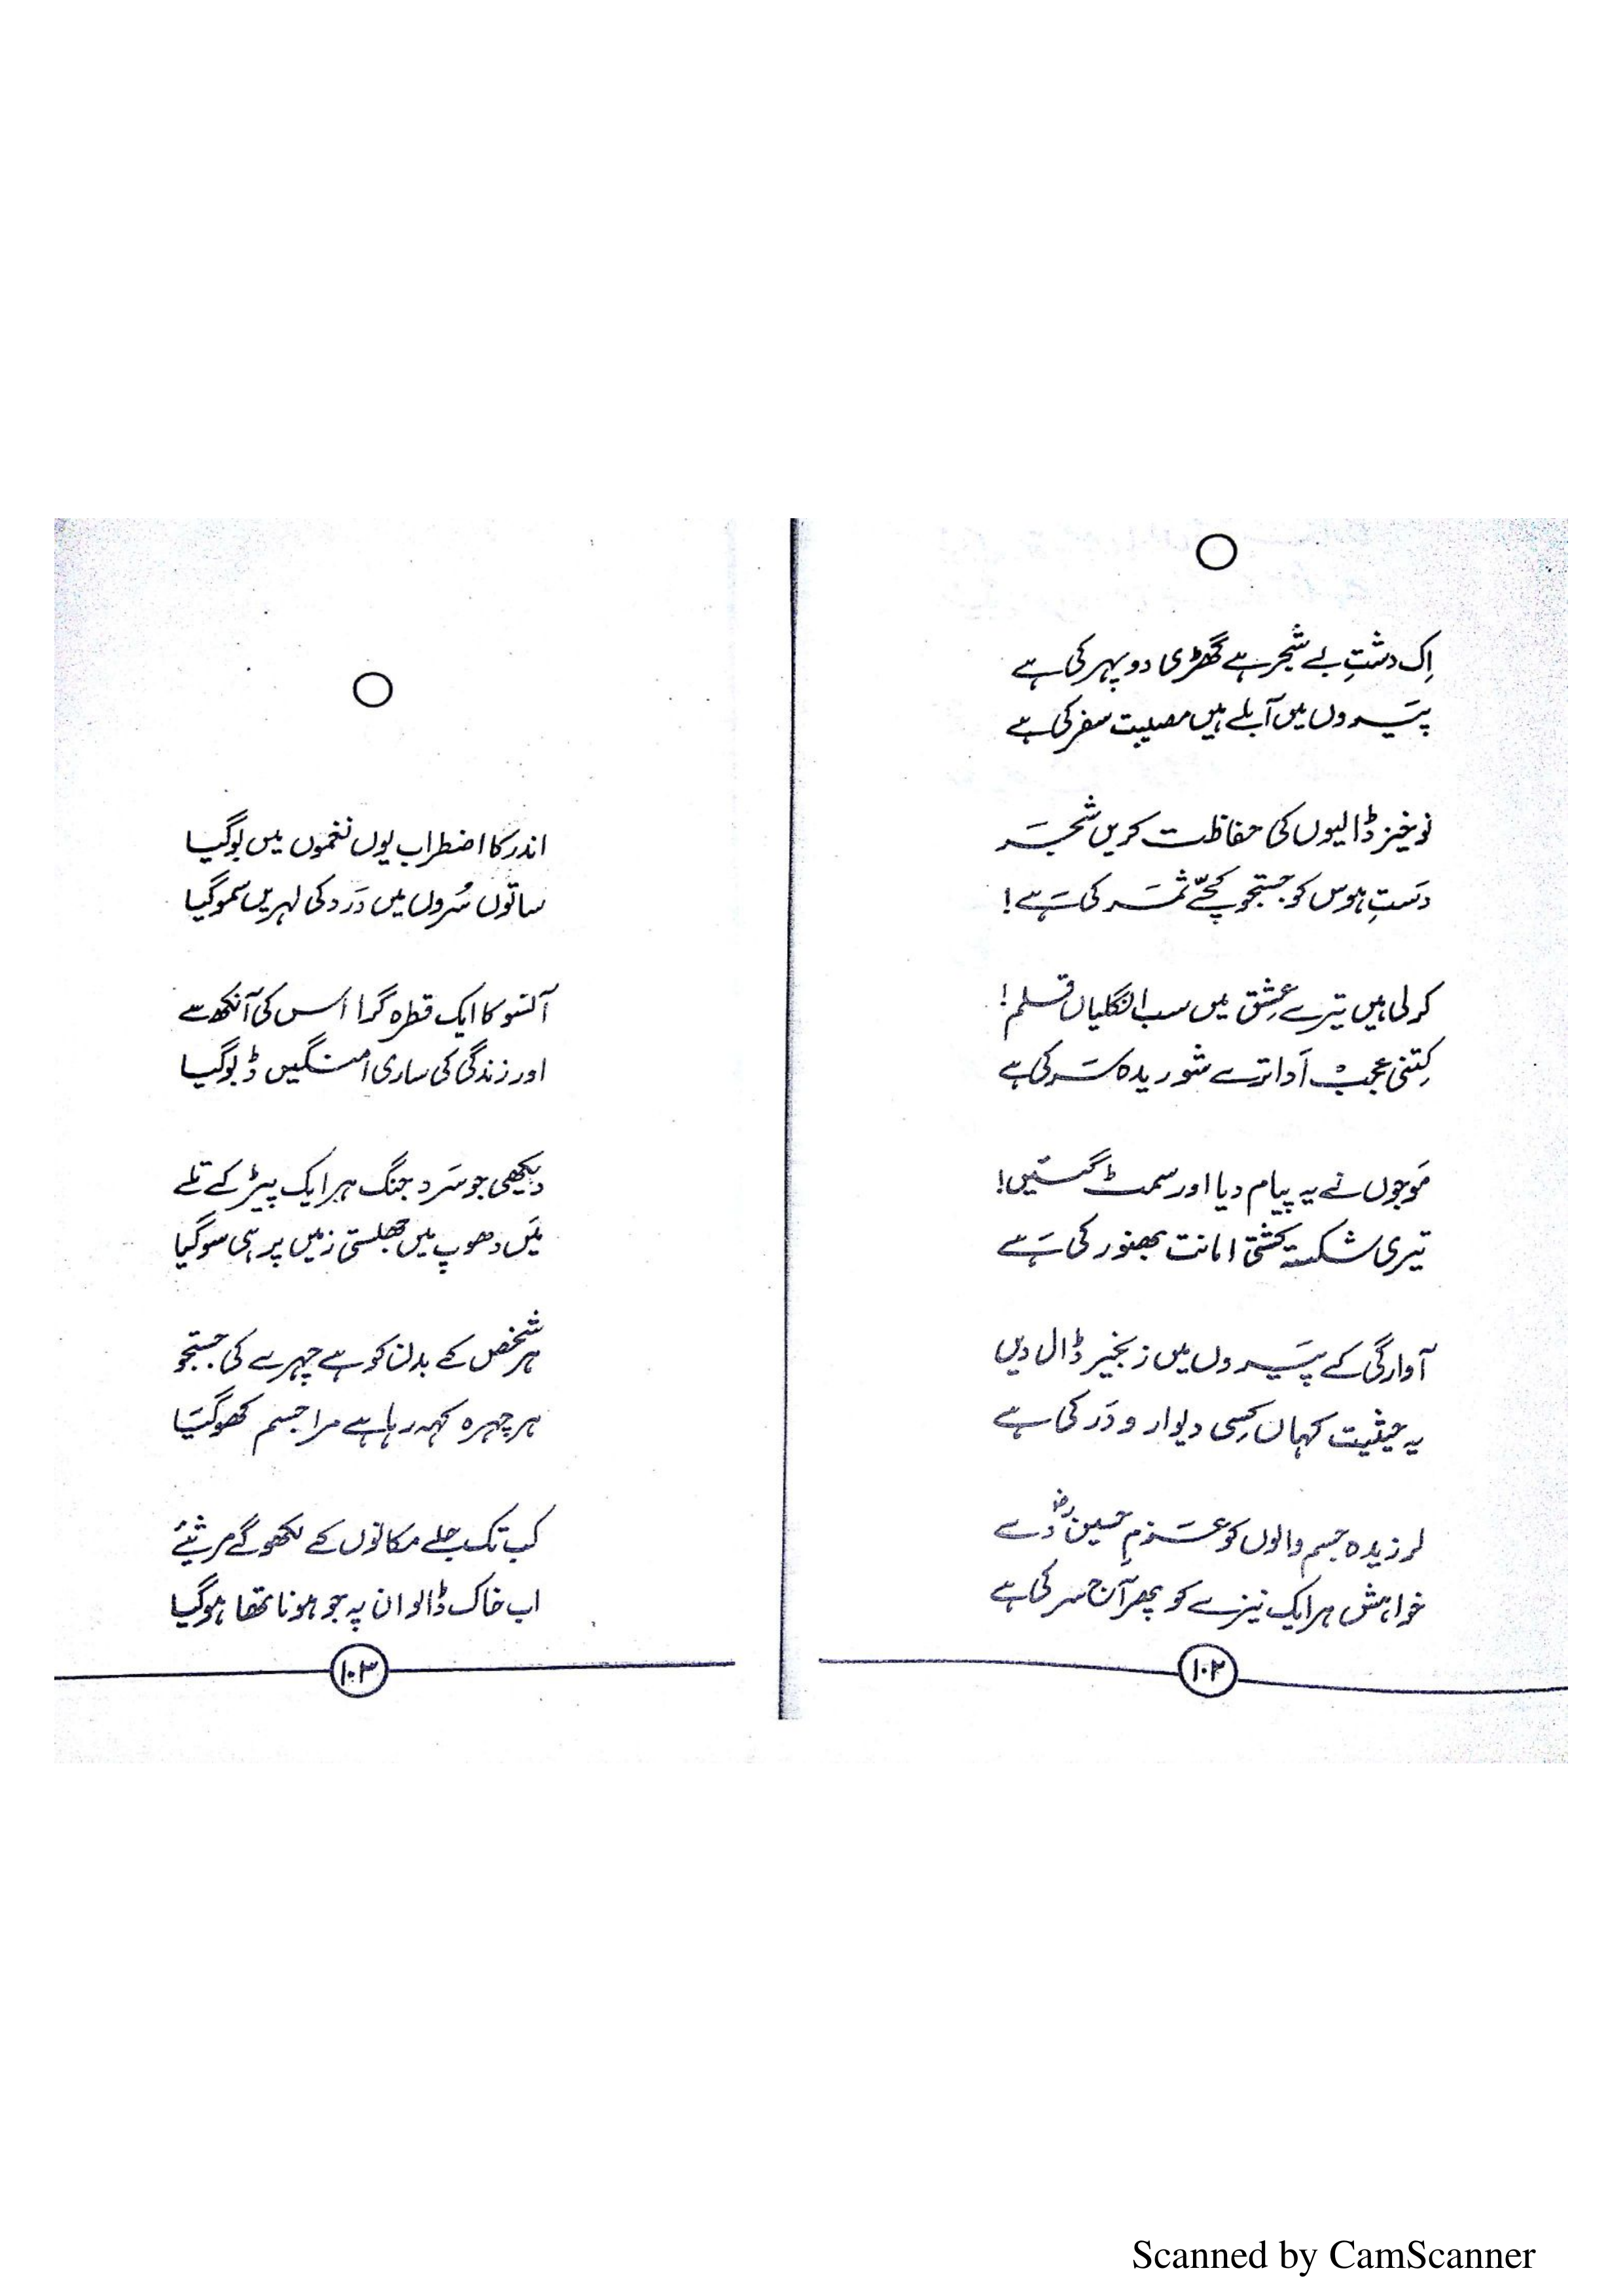 اِک دشتِ بے شجر ہے گھڑی دوپہر کی ہے
پَیروں میں آبلے ہیں مصیبت سفر کی ہے
نوخیز ڈالیوں کی حفاظت کریں شجَر
دَستِ ہوس کو جستجو کچّے ثمَر کی ہَے!
کرلی ہیں تیرے عِشق میں سب انگلیاں قلم!
کِتنی عجبْ اَدا ترے شوریدہ سَر کی ہے
مَوجوں نے یہ پیام دیا اور سمٹ گئیں!
تیری شکستہ کشتی امانت بھنور کی ہَے
آوارگی کے پَیروں میں زنجیر ڈال دیں
یہ حیثیت کہاں کِسی دیوار و دَر کی ہے
لرزیدہ جسم والوں کو عَزمِ حسینؓ دَے
خواہش ہر ایک نیزے کو پھر آج سر کی ہے
۱۰۲
اندر کا اضطراب یوں نغموں میں بوگیا
ساتوں سُروں میں دَرد کی لہریں سموگیا
آنسو کا ایک قطرہ گرا اُس کی آنکھ سے
اور زندگی کی ساری امنگیں ڈبوگیا
دیکھی جو سَرد جنگ ہر ایک پیڑ کے تلے
مَیں دھوپ میں جھلستی زمیں پر ہی سوگیا
ہر شخص کے بدن کو ہے چہرے کی جستجو
ہر چہرہ کہہ رہا ہے مرا جسم کھوگیَا
کب تک جلے مکانوں کے لکھوگے مرثیے
اب خاک ڈالو ان پہ جو ہونا تھا ہوگیا
۱۰۳
Scanned by CamScanner